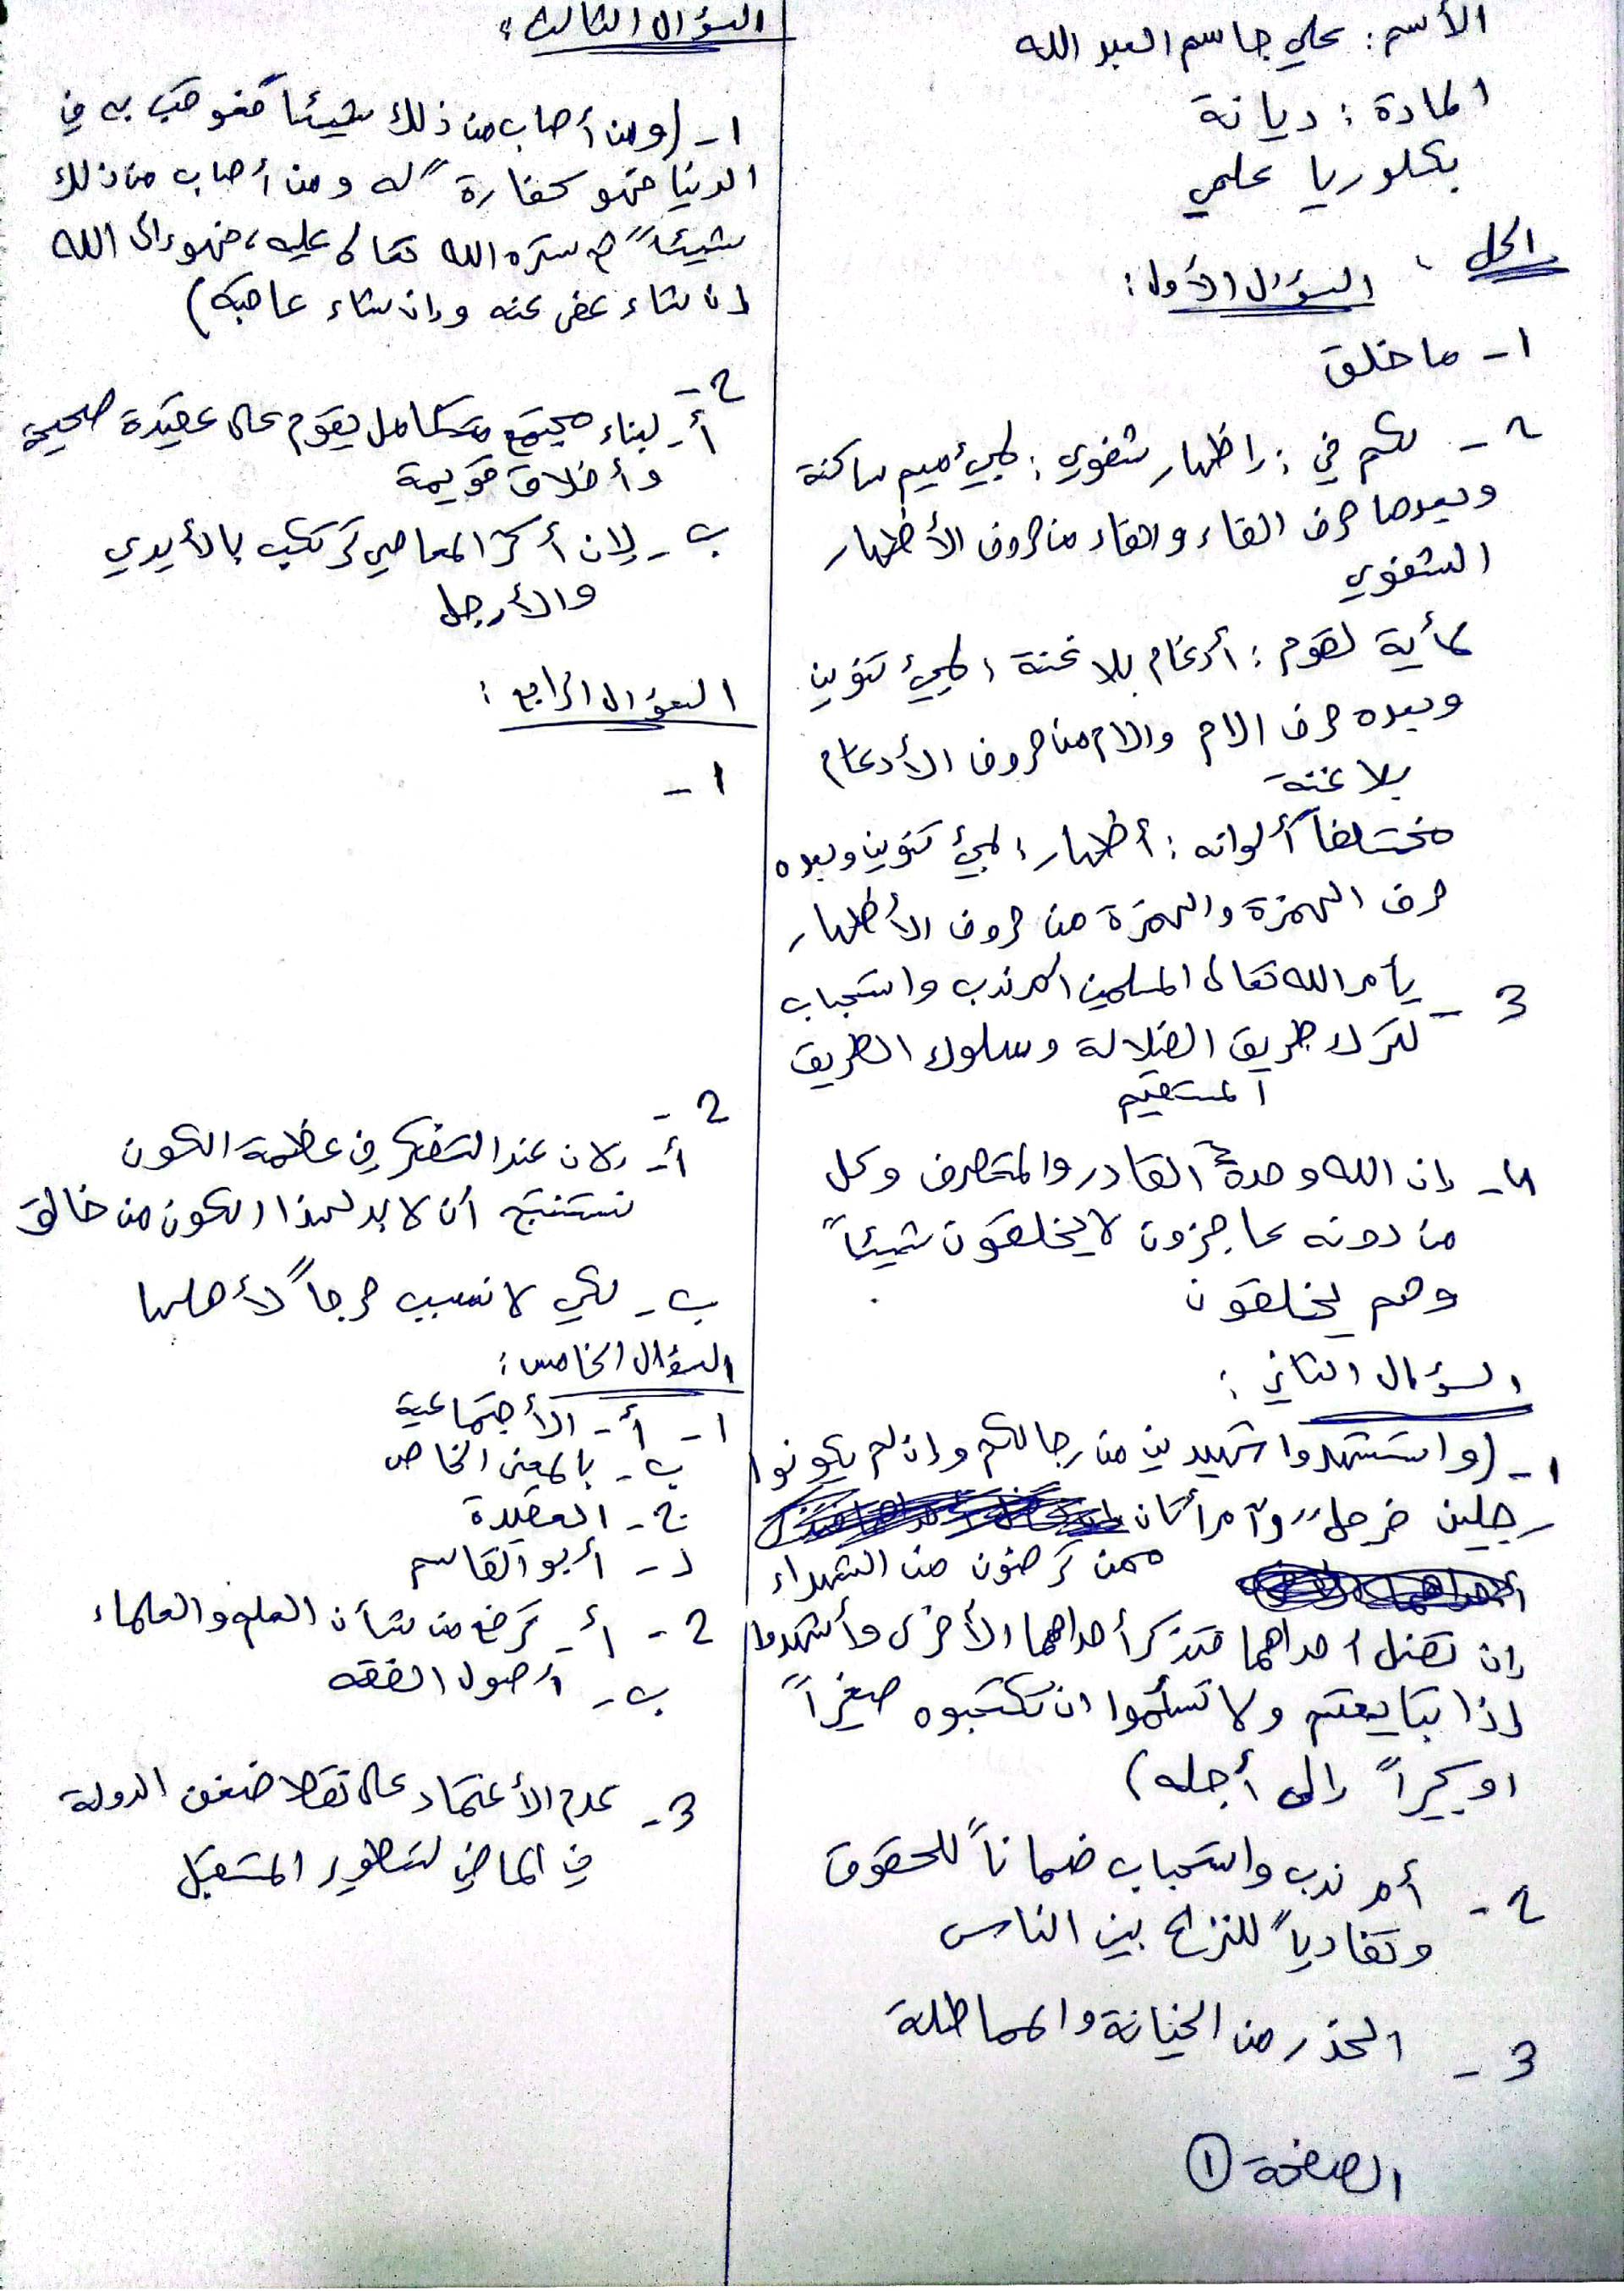 الأسم : علي جاسم العبد الله
المادة : ديانة
بكلوريا علمي
الحل
السؤال الأول :
1- ما خلق
2- لكم في : إظهار شفوي : لمجيء ميم ساكنة
وبعدها حرف الفاء والفاء من حروف الأظهار
الشفوي
لأية لقوم : أدغام بلا غنة : لمجيء تنوين
وبعده حرف الام والام من حروف الأدغام
بلا غنة
مختلفاً ألوانه : أظهار : لمجيء تنوين وبعده
حرف الهمزة والهمزة من حروف الأظهار
3- يأمر الله تعالى المسلمين امر ندب واستحباب
لترك طريق الضلالة وسلوك الطريق
المستقيم
4- إن الله وحدة القادر والمتصرف وكل
من دونه عاجزون لا يخلقون شيئاً
وهم يخلقون
السؤال الثاني :
1- (واستشهدوا شهيدين من رجالكم وإن لم يكونوا
رجلين فرجلٌ وامرأتان
ممن ترضون من الشهداء
إن تضل احداهما فتذكر أحداهما الأخرى وأشهدوا
إذا تبايعتم ولا تسأموا ان تكتبوه صغيراً
او كبيراً إلى أجله)
2- أمر ندب واستحباب ضماناً للحقوق
وتفادياً للنزاع بين الناس
3- الحذر من الخيانة والمماطلة
الصفحة 1
السؤال الثالث :
1- (ومن أصاب من ذلك شيئاً فعوقب به في
الدنيا فهو كفارةٌ له ومن أصاب من ذلك
شيئاً ثم ستره الله تعالى عليه، فهو إلى الله
إن شاء عفى عنه وإن شاء عاقبه)
2-
أ- لبناء مجتمع متكامل يقوم على عقيدة صحيحة
وأخلاق قويمة
ب- لإن أكثر المعاصي ترتكب بالأيدي
والأرجل
السؤال الرابع :
1-
2-
أ- لان عند التفكر في عظمة الكون
نستنتج أن لا بد لهذا الكون من خالق
ب- لكي لا نسبب حرجاً لأهلها
السؤال الخامس :
1- أ- الأجتماعية
ب- بالمعنى الخاص
ج- العقيدة
د- أبو القاسم
2- أ- ترفع من شأن العلم والعلماء
ب- أصول الفقه
3- عدم الأعتماد على نقاط ضعف الدولة
في الماضي لتطوير المستقبل